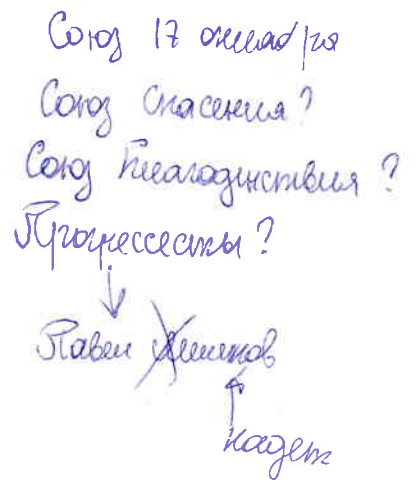 Союз 17 октября
Союз Спасения?
Союз Благоденствия?
Прогрессесты?
Павел
кадет